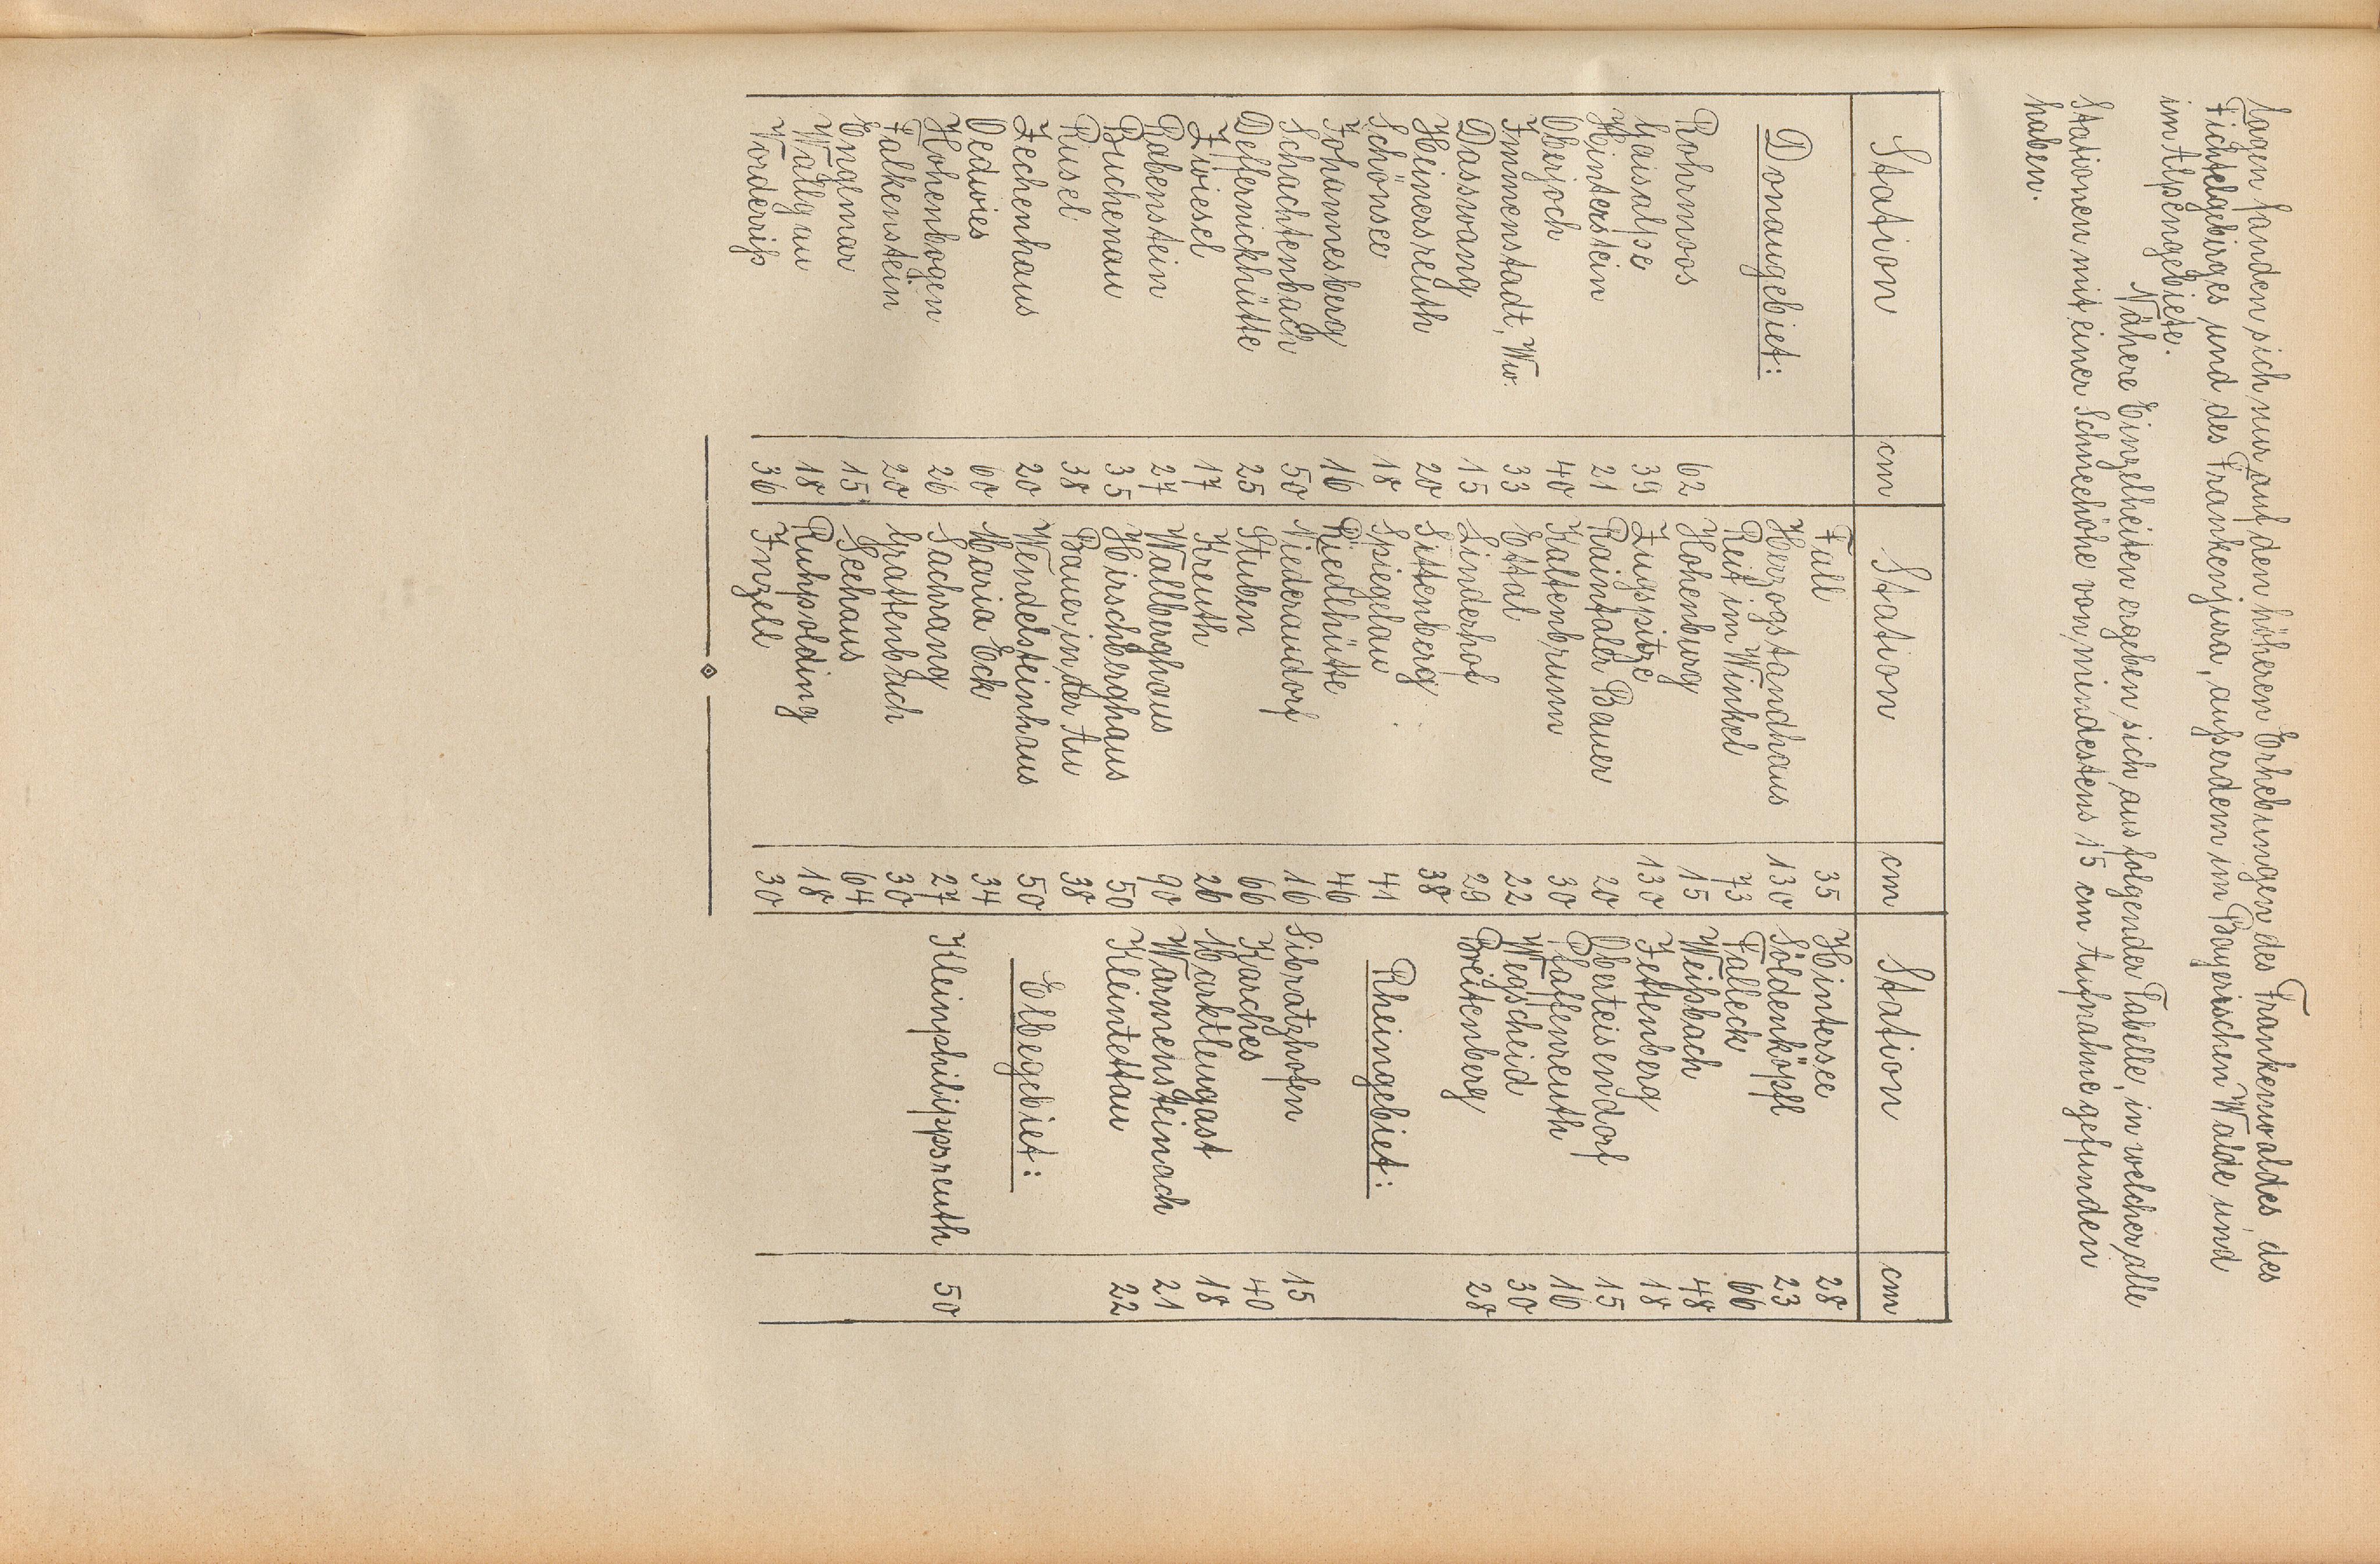 Lagen fanden sich nur auf den höheren Erhebungen des Frankenwaldes, des
Fichtelgebirges und des Frankenjura, außerdem im Bayerischen Walde und
im Alpengebiete.
Nähere Einzelheiten ergeben sich aus folgender Tabelle, in welcher alle
Stationen mit einer Schneehöhe von mindestens 15 cm Aufnahme gefunden
haben.
Station cm Station cm Station cm
Fall 35 Hintersee 28
Donaugebiet: Herzogstandhaus 130 Söldenköpfl 23
Reit im Winkel 73 Falleck 66
Rohrmoos 62 Hohenburg 15 Weißbach 48
Gaisalpe 39 Zugspitze 130 Jettenberg 18
Hinterstein 21 Raintaler Bauer 20 Oberteisendorf 15
Oberjoch 40 Kaltenbrunn 30 Pfaffenreuth 16
Immenstadt, Ww. 33 Ettal 22 Wegscheid 30
Dasswang 15 Linderhof 29 Breitenberg 28
Heinersreuth 20 Sittenberg 38
Schönsee 18 Spiegelau 41 Rheingebiet:
Johannesberg 16 Riedlhütte 46
Schachtenbach 50 Niederaudorf 16 Sibratzhofen 15
Deffernickhütte 25 Stuben 66 Karches 40
Zwiesel 17 Kreuth 26 Marktleugast 18
Rabenstein 27 Wallberghaus 90 Warmensteinach 21
Buchenau 35 Hirschberghaus 50 Kleintettau 22
Rusel 38 Bauer in der Au 38
Zechenhaus 20 Wendelsteinhaus 50 Elbegebiet:
Oedwies 60 Maria Eck 34
Hohenbogen 26 Sachrang 27 Kleinphilippsreuth 50
Falkenstein 20 Grattenbach 30
Englmar 15 Seehaus 64
Wallgau 18 Ruhpolding 18
Vorderriß 36 Inzell 30